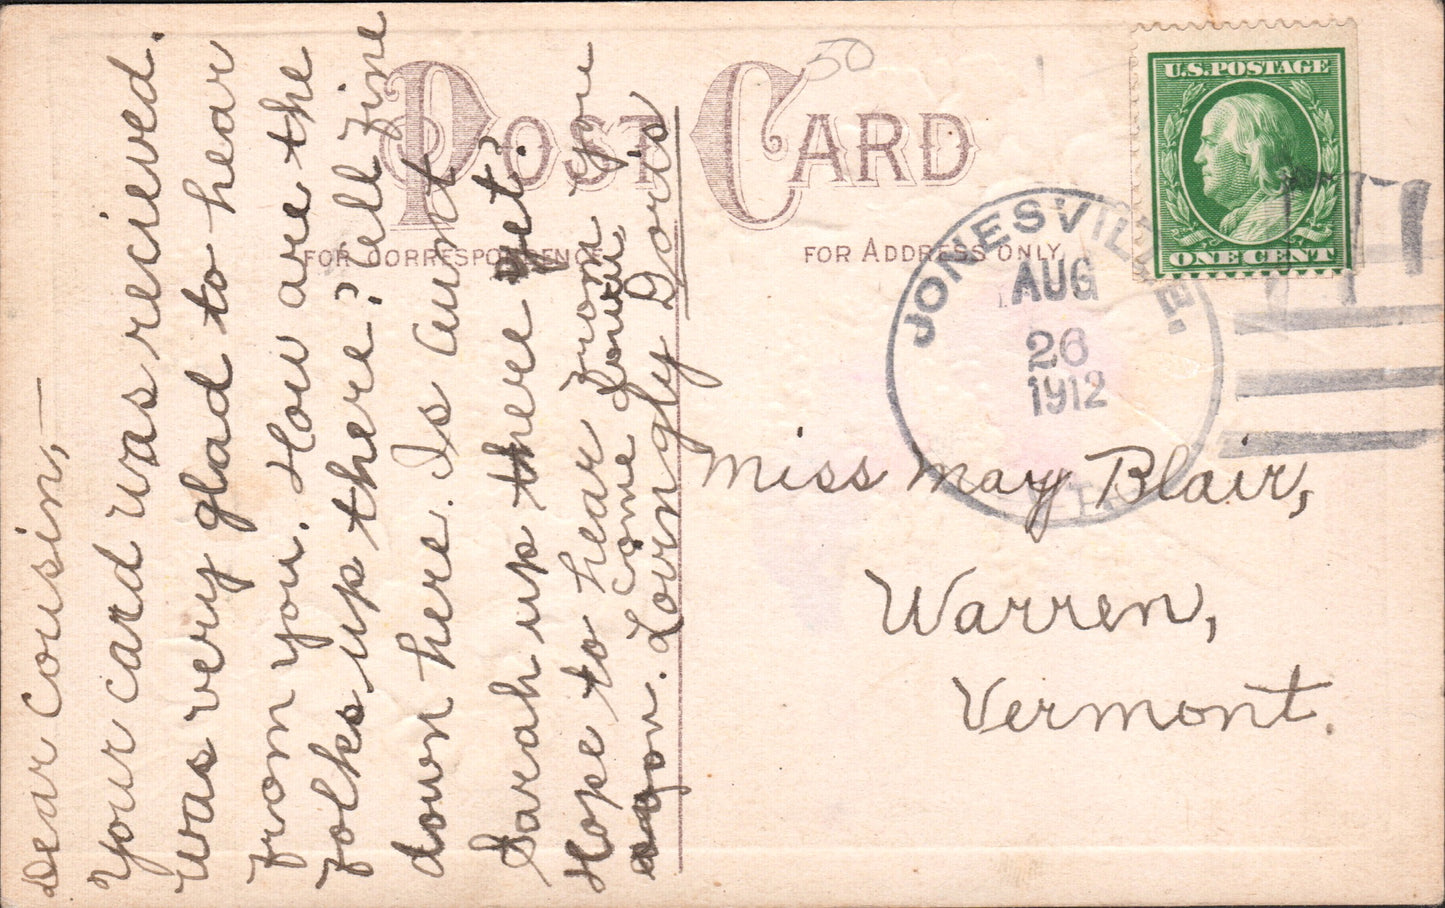 POST CARD
FOR CORRESPONDENCE
FOR ADDRESS ONLY
50
U.S.POSTAGE
ONE CENT
JONESVILLE.
AUG
26
1912
VT.
Dear Cousin,—
Your card was recieved.
Was very glad to hear
from you. How are the
folks up there? all fine
down here. Is aunt
Sarah up there yet?
Hope to hear from you
again. Come down
Lovingly Doris
Miss May Blair,
Warren,
Vermont.